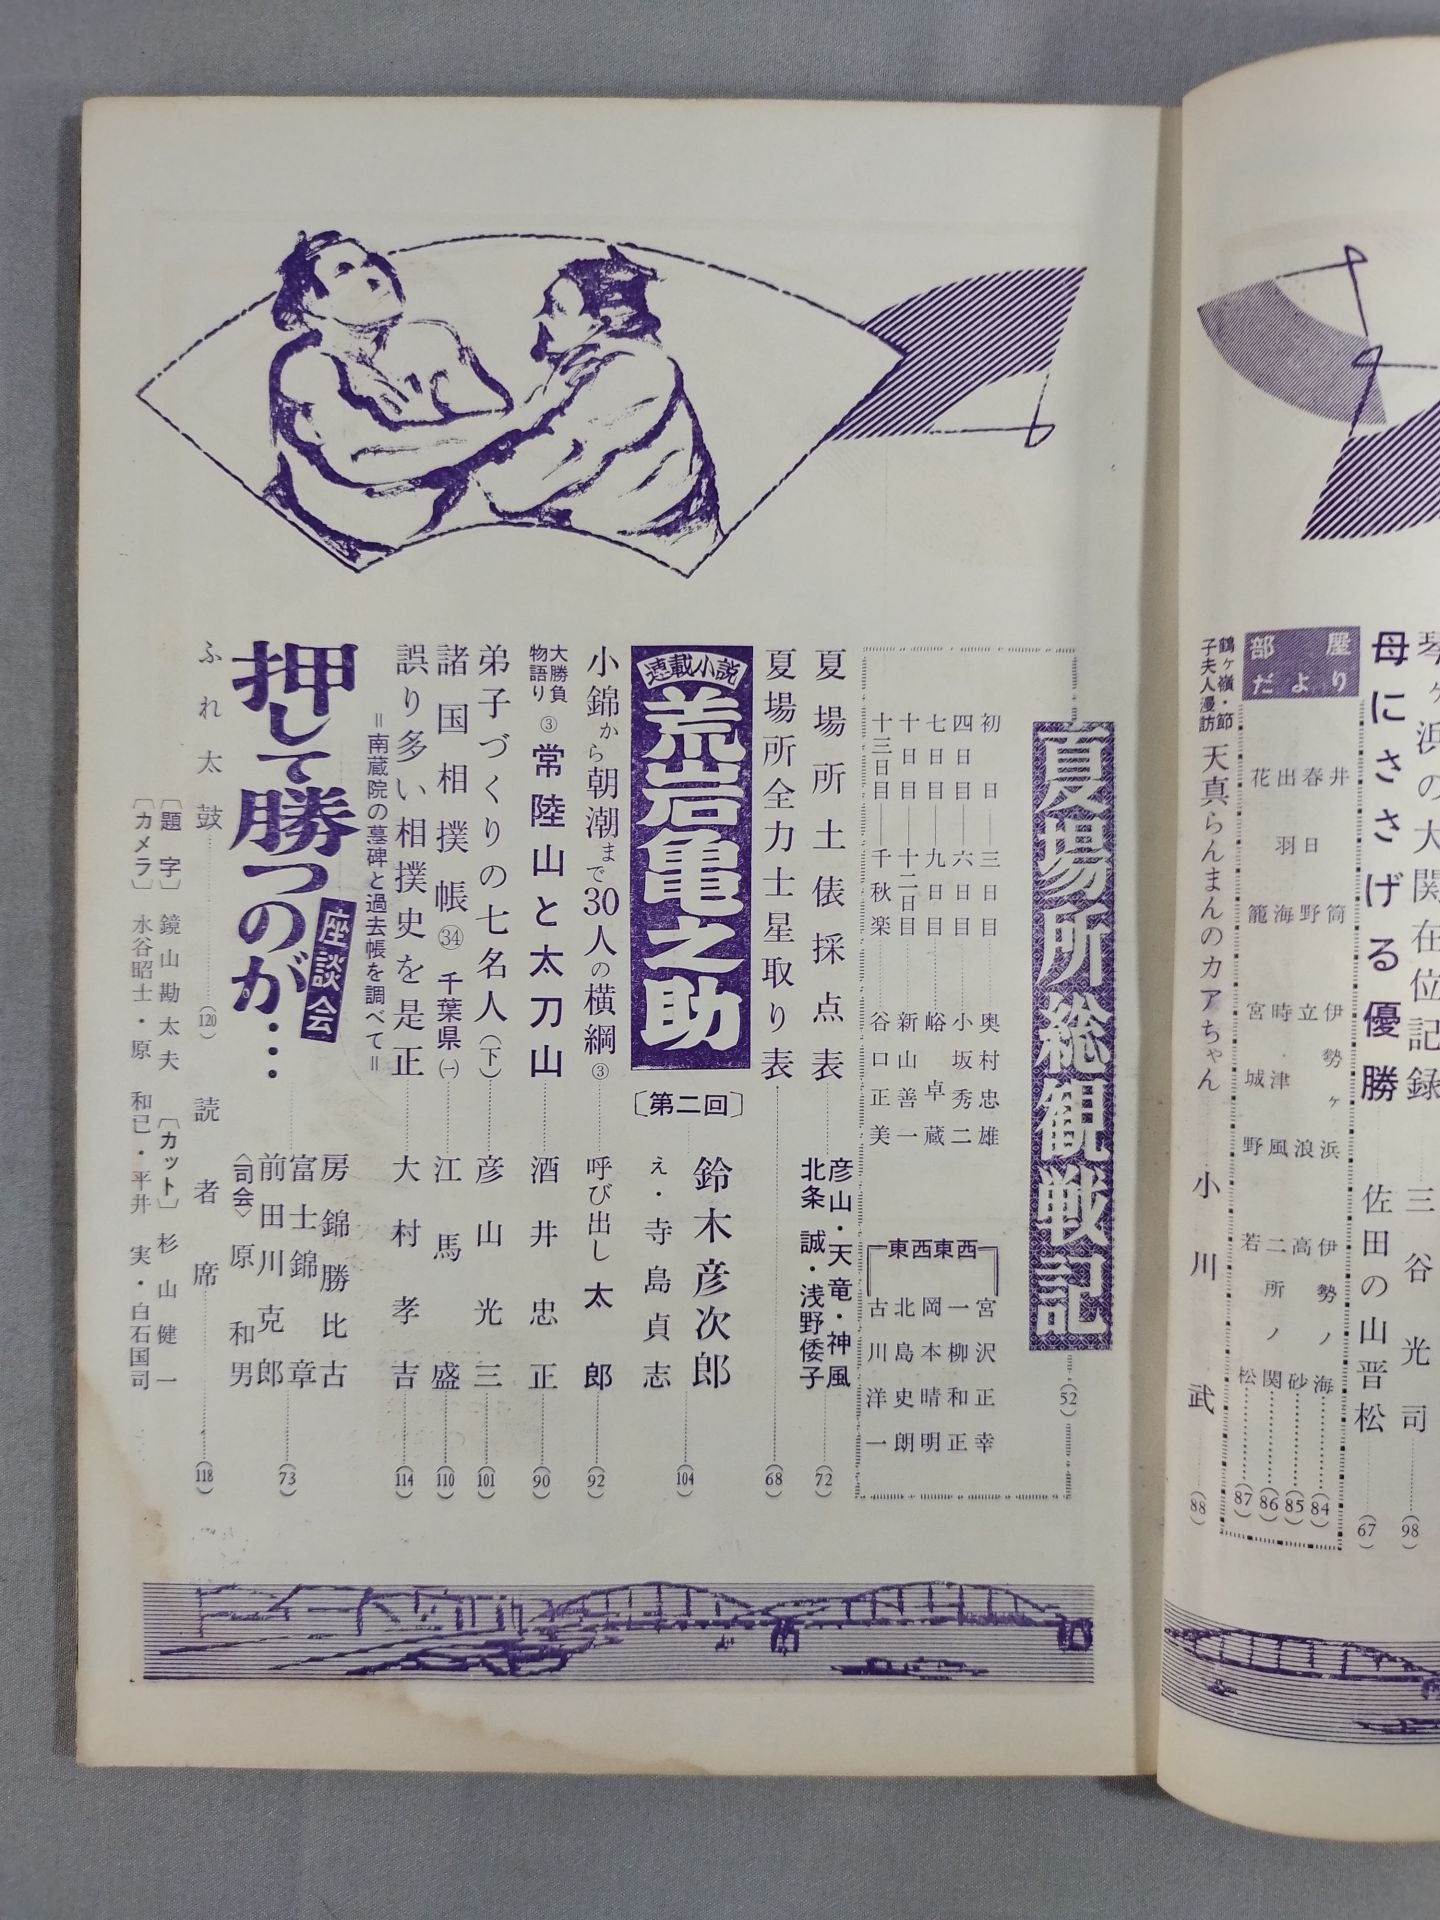 琴ヶ浜の大関在位記録……三谷光司……(98)
母にささげる優勝……佐田の山晋松……(67)
部屋だより
井筒 伊勢ヶ浜 伊勢ノ海……(84)
春日野 立浪 高砂……(85)
出羽海 時津風 二所ノ関……(86)
花籠 宮城野 若松……(87)
鶴ヶ嶺・節子夫人漫訪 天真らんまんのカアちゃん……小川武……(88)
夏場所総観戦記……(52)
初日――三日目……奥村忠雄
四日目――六日目……小坂秀二
七日目――九日目……峪卓蔵
十日目――十二日目……新山善一
十三日目――千秋楽……谷口正美
西 宮沢正幸
一柳和正
東西 岡本晴明
西 北島史朗
東 古川洋一
夏場所土俵採点表……彦山・天竜・神風 北条誠・浅野倭子……(72)
夏場所全力士星取り表……(68)
連載小説
荒岩亀之助
〔第二回〕……鈴木彦次郎 え・寺島貞志……(104)
小錦から朝潮まで30人の横綱③……呼び出し太郎……(92)
大勝負物語り③ 常陸山と太刀山……酒井忠正……(90)
弟子づくりの七名人(下)……彦山光三……(101)
諸国相撲帳㉞ 千葉県(一)……江馬盛……(110)
誤り多い相撲史を是正……大村孝吉……(114)
=南蔵院の墓碑と過去帳を調べて=
座談会
押して勝つのが…
房錦勝比古
富士錦章
前田川克郎
〈司会〉原和男
……(73)
ふれ太鼓……(120) 読者席……(118)
〔題字〕鏡山勘太夫 〔カット〕杉山健一
〔カメラ〕水谷昭士・原和己・平井実・白石国司